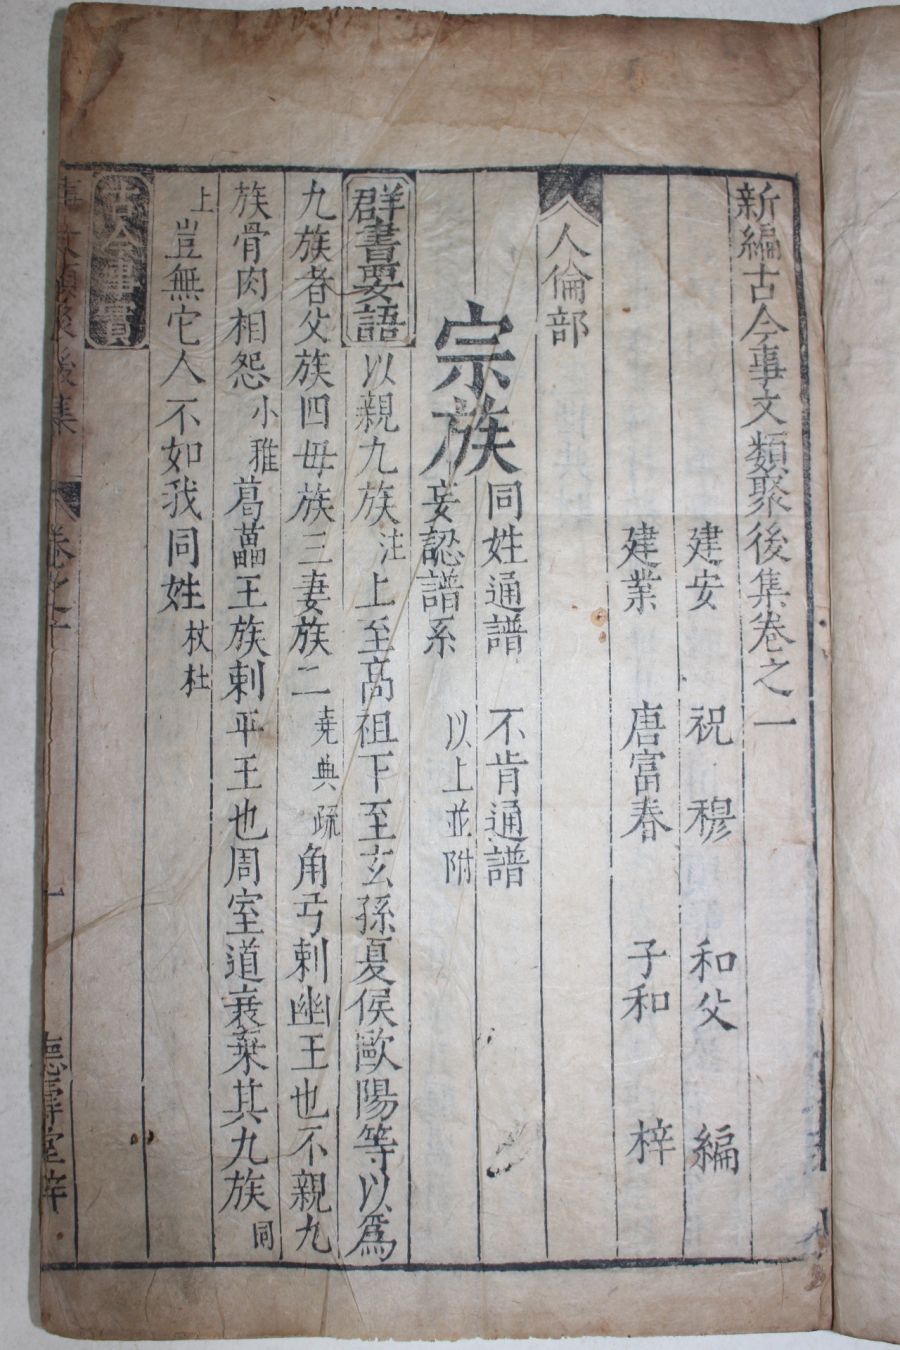 新編古今事文類聚後集卷之一
建安 祝 穆 和父 編
建業 唐富春 子和 梓
人倫部
宗族 同姓通譜 不肯通譜
妄認譜系 以上並附
群書要語 以親九族 注 上至高祖下至玄孫夏侯歐陽等以爲
九族者父族四母族三妻族二 堯典疏 角弓刺幽王也不親九
族骨肉相怨 小雅 葛藟王族刺平王也周室道衰棄其九族 同
上 豈無它人不如我同姓 杕杜
古今事實
事文類聚後集 卷之一 一 德壽堂梓